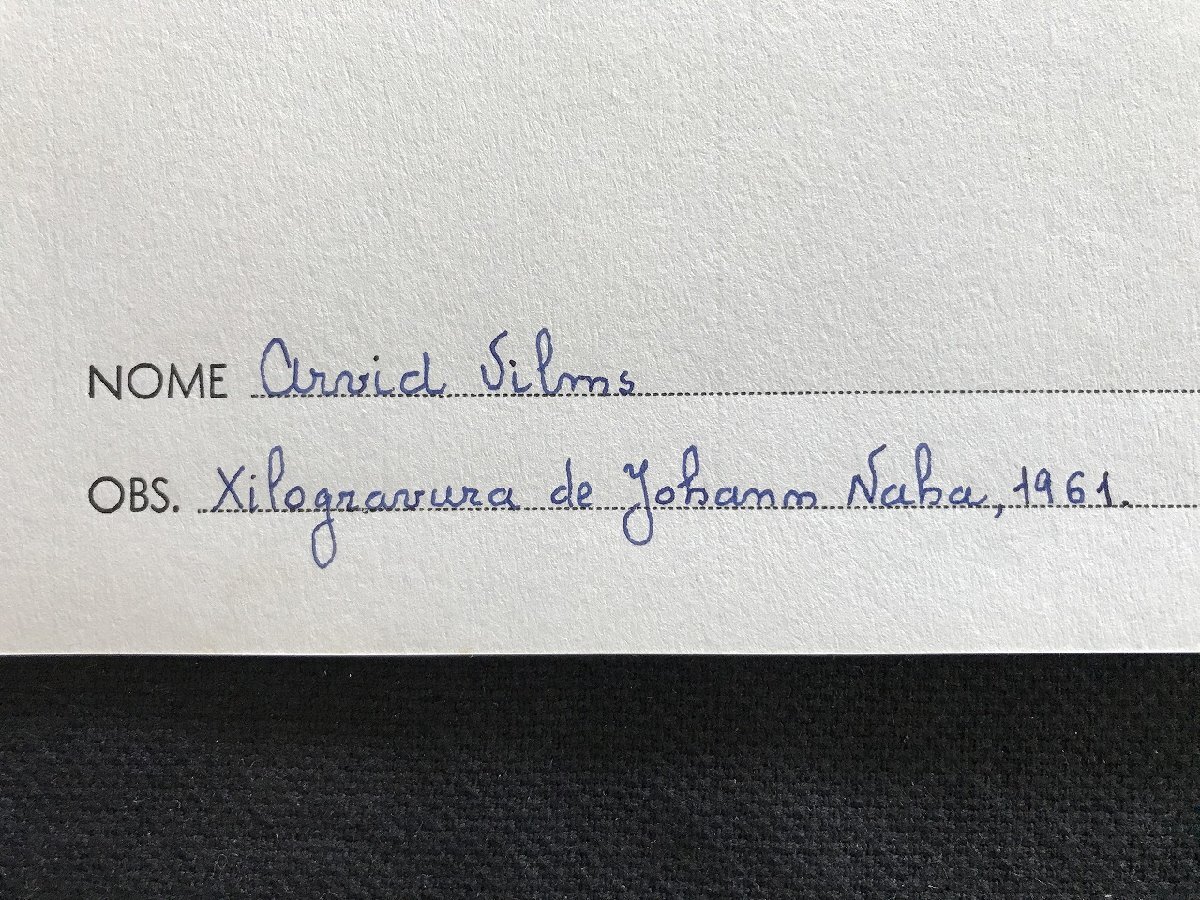 NOME Arvid Vilms
OBS. Xilogravura de Johann Naha, 1961.